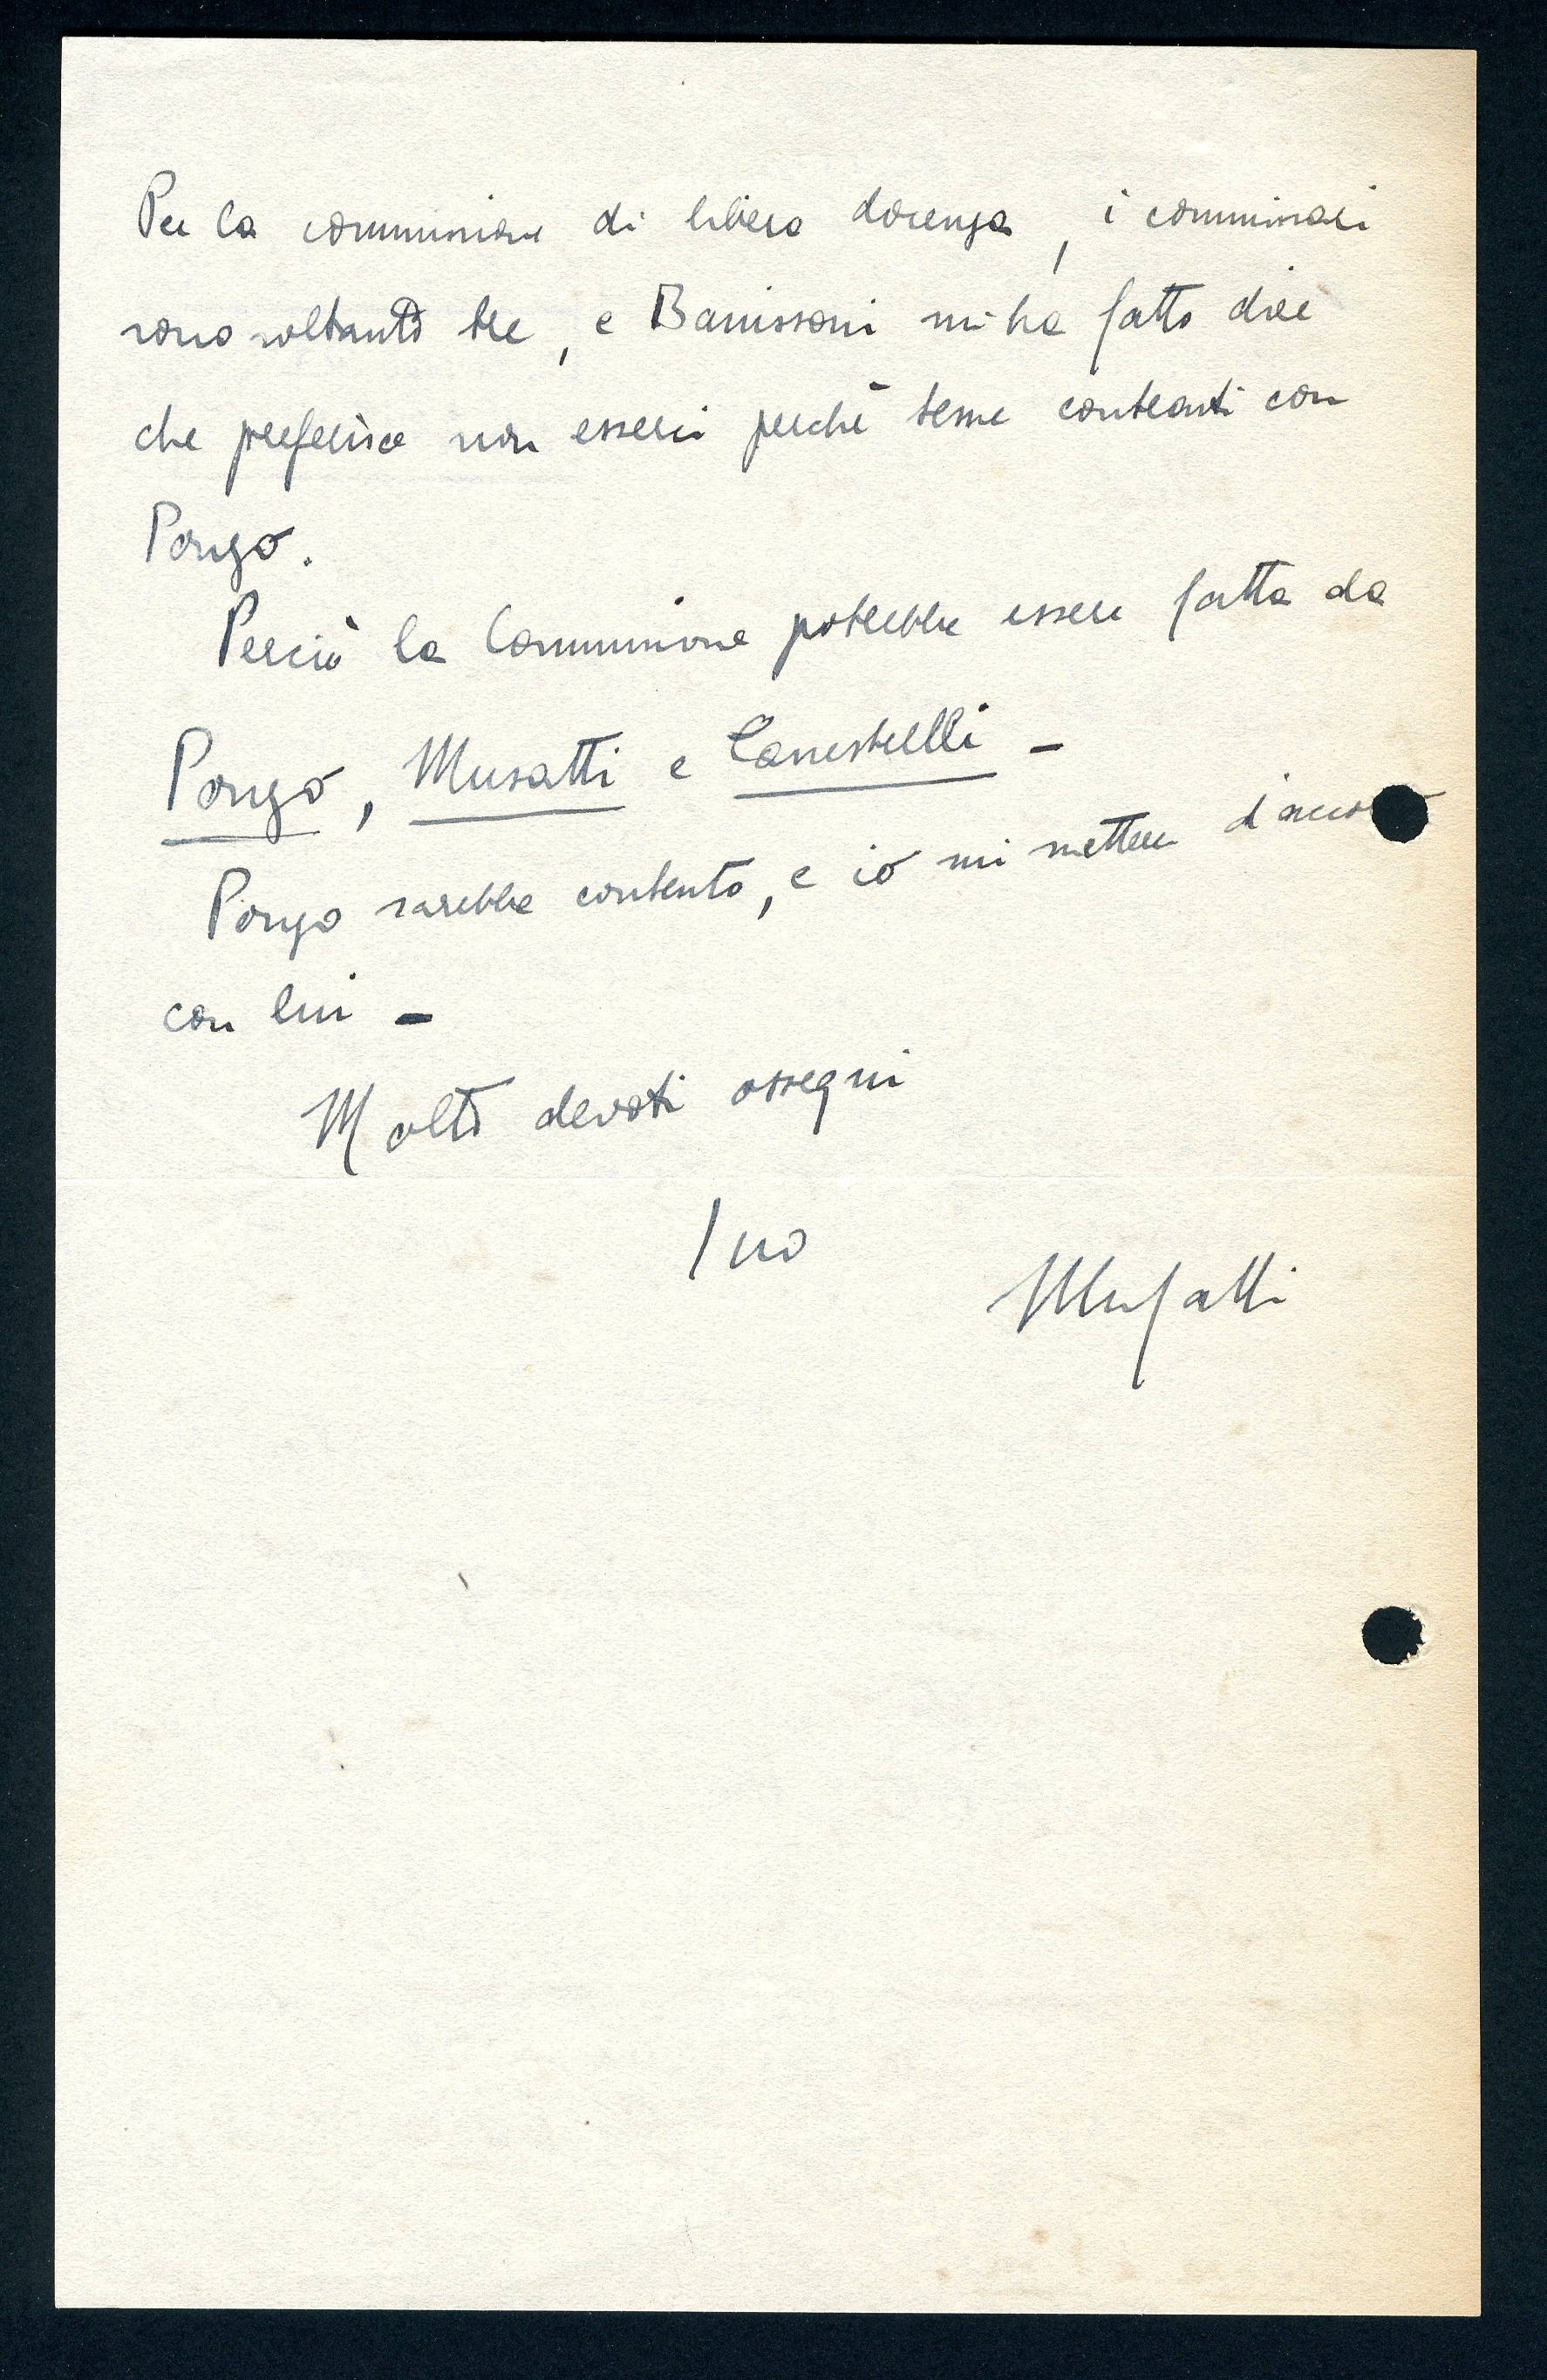 Per la commissione di libera docenza, i commissari
sono soltanto tre, e Banissoni mi ha fatto dire
che preferisce non esserci perché teme contrasti con
Ponzo.
Perciò la Commissione potrebbe essere fatta da
Ponzo, Musatti e Canestrelli -
Ponzo sarebbe contento, e io mi metterei
con lui -
Molto devoti ossequi
Suo
Musatti